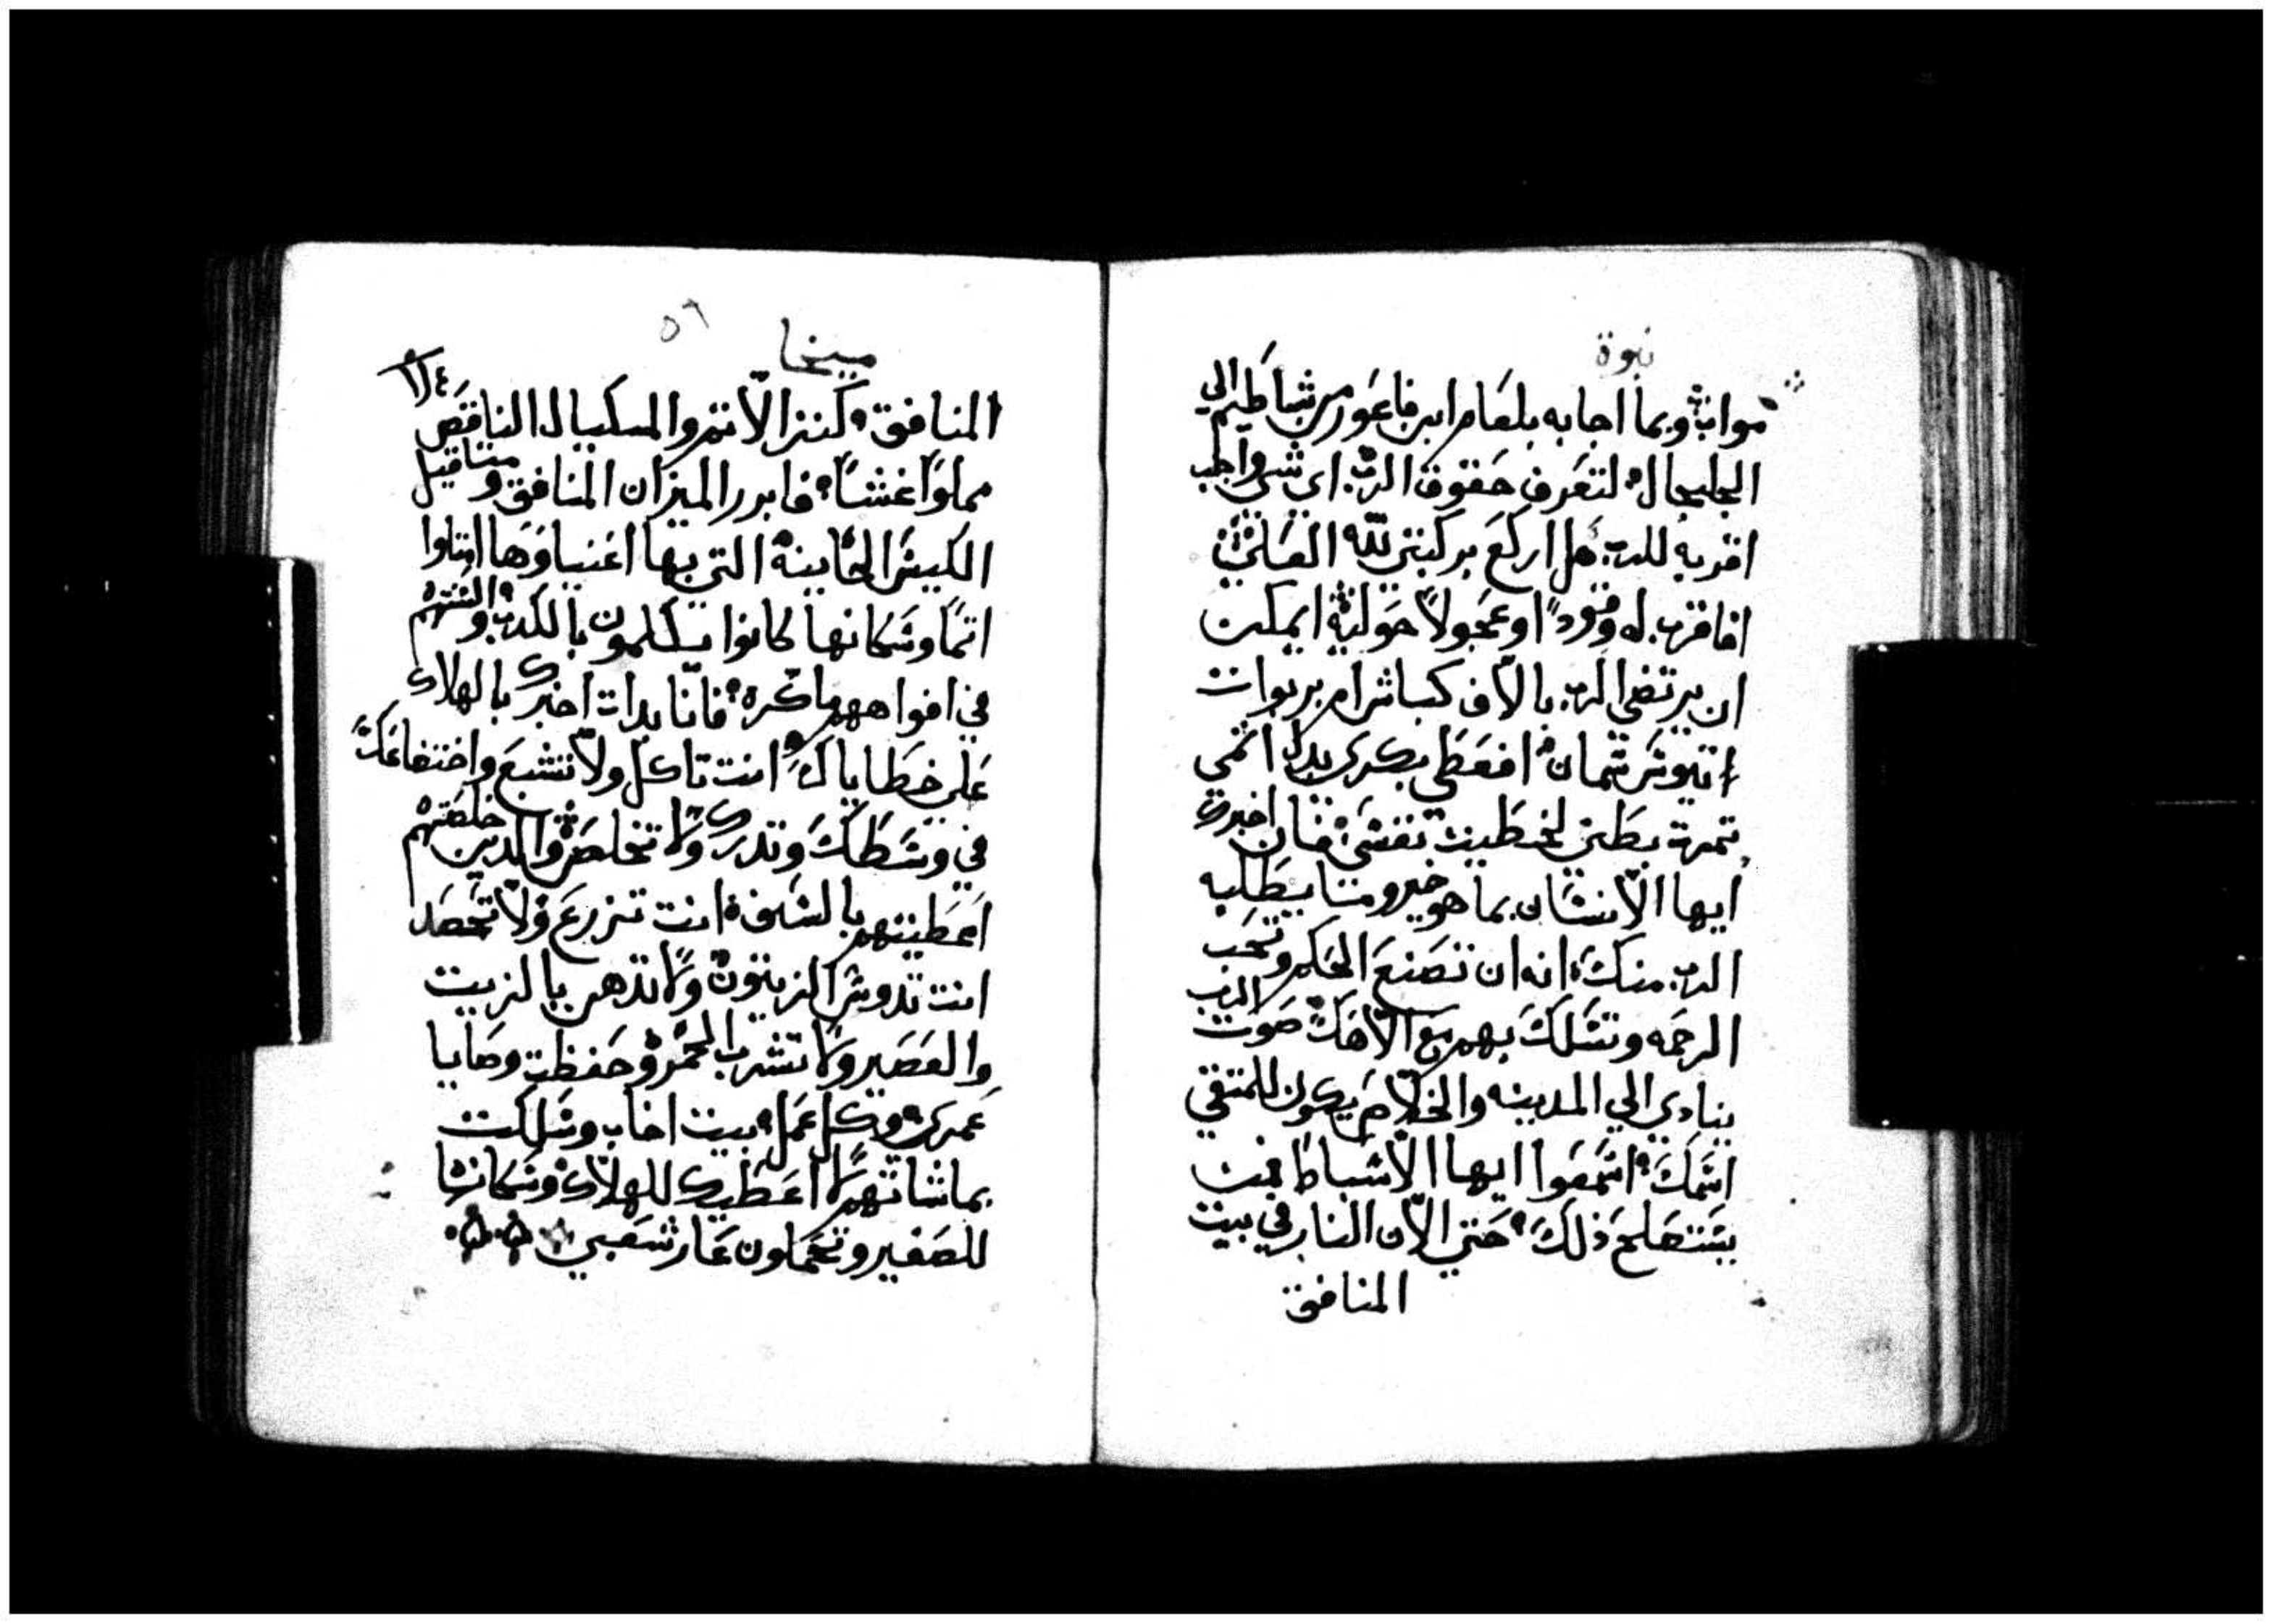 نبوة
مواب وبما اجابه بلعام ابن فاعور من شاطيم الي
الجليجال لتعرف حقوق الرب اي شي واجب
اقربه للرب هل اركع بركبتي لله العلي
افاقرب له وقودا او عجولا حولية ايمكن
ان يرتضي الرب بالاف كباش ام بربوات
اتيوس سمان افعطي بكري بدل اثمي
تمرة بطني لخطية نفسي فان اخبرك
ايها الانسان بما هو خير وما يطلبه
الرب منك انه ان تصنع الحكم وتحب
الرحمه وتسلك بهمع الاهك صوت الرب
ينادي الي المدينه والخلاص يكون للمتقي
اسمك اسمعوا ايها الاسباط فمن
يستصلح ذلك حتي الان النار في بيت
المنافق
ميخا
٥٦
المنافق كنز الاثم والمكيال الناقص
مملوا غشا فابرر الميزان المنافق ومثاقيل
الكيس الخاينة التي بها اغنياوها امتلوا
اثما وسكانها كانوا يتكلمون بالكدب والسنتهم
في افواههم ماكرة فانا بدات اخبرك بالهلاك
علي خطاياك انت تاكل ولا تشبع واختفاعك
في وسطك وتدرك ولا تخلص والدين خلصتهم
اعطيتهم بالسيف انت تزرع ولا تحصد
انت تدوس الزيتون ولا تدهن بالزيت
والعصير ولا تشرب الخمر وحفظت وصايا
عمري وكل عمل بيت اخاب وسلكت
بماشاتهم لاعطيك للهلاك وسكانها
للصفير وتحملون عار شعبي